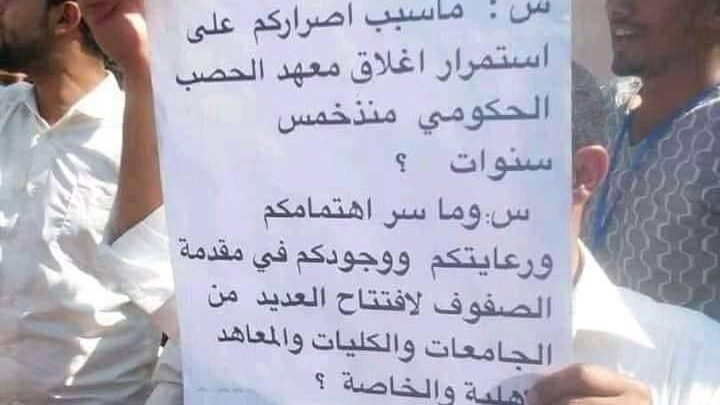 س : ماسبب اصراركم على
استمرار اغلاق معهد الحصب
الحكومي منذخمس
سنوات ؟
س:وما سر اهتمامكم
ورعايتكم ووجودكم في مقدمة
الصفوف لافتتاح العديد من
الجامعات والكليات والمعاهد
والخاصة ؟